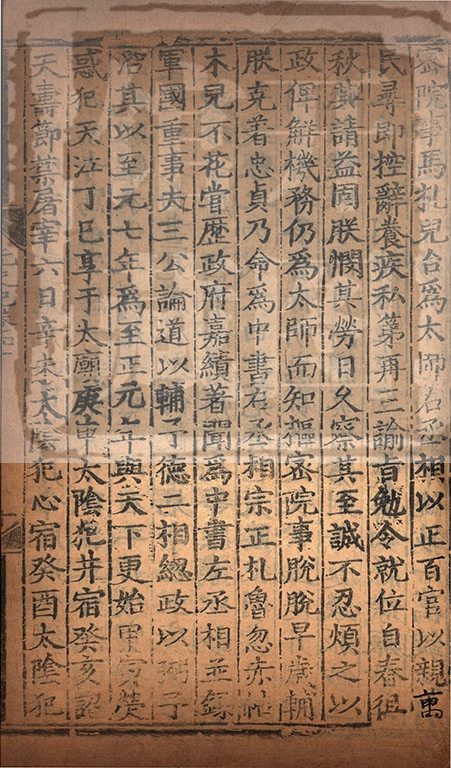 密院事馬札兒台爲太師右丞相以正百官以親萬
民尋即控辭養疾私第再三諭旨勉令就位自春徂
秋其請益固朕憫其勞日久察其至誠不忍煩之以
政俾解機務仍爲太師而知樞密院事脫脫早歲輔
朕克著忠貞乃命爲中書右丞相宗正札魯忽赤帖
木兒不花嘗歷政府嘉績著聞爲中書左丞相並錄
軍國重事夫三公論道以輔予德二相總政以弼予
治其以至元七年爲至正元年與天下更始甲寅熒
惑犯天江丁巳享于太廟庚申太陰犯井宿癸亥詔
天壽節禁屠宰六日辛未太陰犯心宿癸酉太陰犯